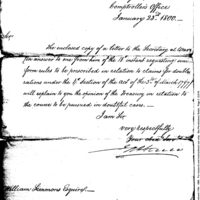 Comptroller's Office
January 23d 1800.
Sir
The inclosed copy of a letter to the Secretary of War
in answer to one from him of the 18 instant requesting uni-
form rules to be prescribed in relation to claims for double
rations under the 4th Section of the Act of the 3d of March 1799
will explain to you the opinion of the Treasury in relation to
the course to be pursued in doubtful cases.
I am Sir
very respectfully
Your obed. Servt
William Simmons Esquire